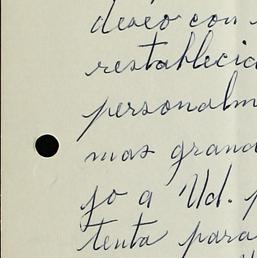 deseo con
restablecid
personalm
mas grand
jo a Ud. p
tenta para